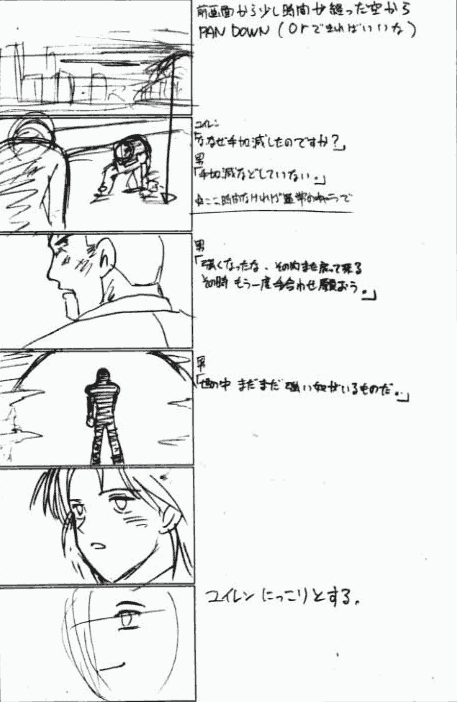 前画面から少し時間が経った空から
PAN DOWN (orできればいいな)
ユイレン
「なぜ手加減したのですか?」
男
「手加減などしていない。」
※ここ時間なければ
男
「強くなったな、そのうちまた戻って来る
その時 もう一度手合わせ願おう。」
男
「世の中 まだまだ 強い奴がいるものだ。」
ユイレン にっこりとする。